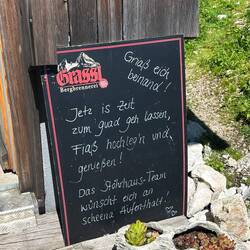 Grassl
Bergbrennerei
Griaß eich
beinand!
Jetz is Zeit
zum guad geh lassen,
Fiaß hochleg'n und
genießen!
Das Stöhrhaus-Team
wünscht eich an
scheena Aufenthalt!